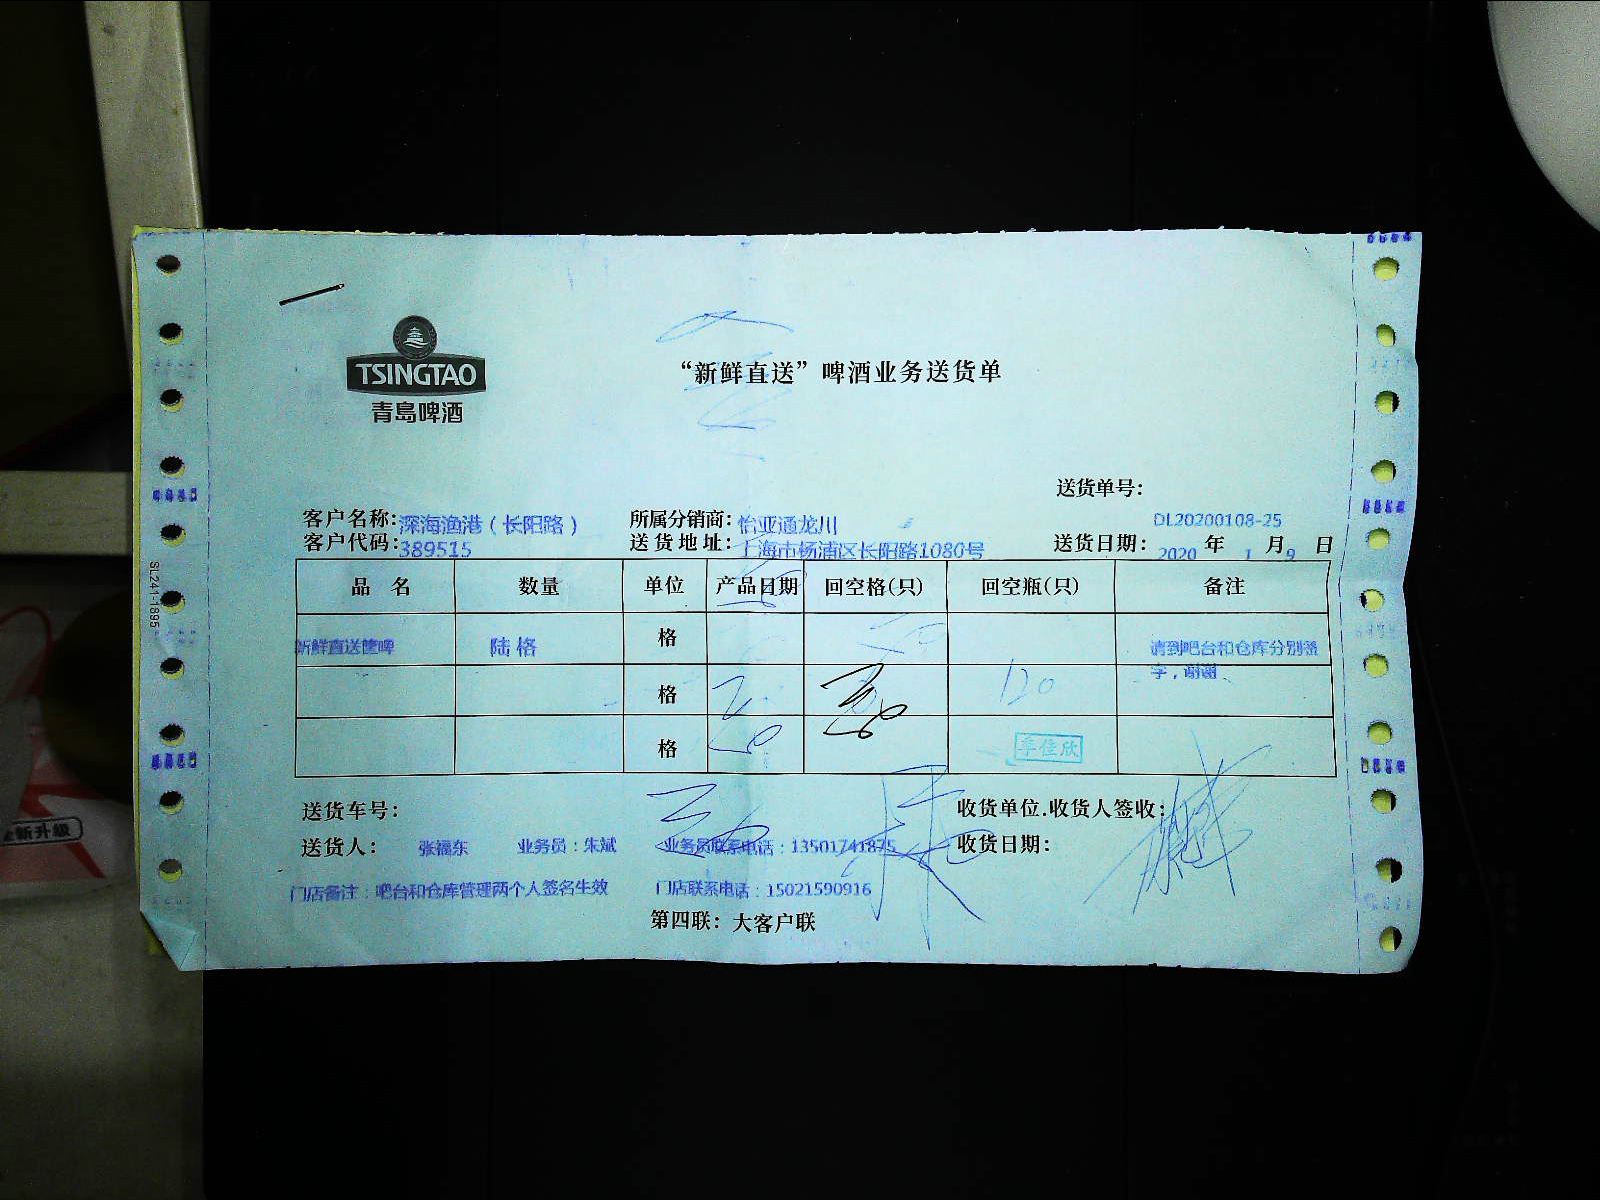 TSINGTAO
青岛啤酒
“新鲜直送”啤酒业务送货单
送货单号:
DL20200108-25
客户名称:深海渔港(长阳路) 所属分销商:怡亚通龙川
客户代码:389515 送货地址:上海市杨浦区长阳路1080号 送货日期: 2020 年 1 月 9 日
品 名 数量 单位 产品日期 回空格(只) 回空瓶(只) 备注
新鲜直送 陆格 格 请到吧台和仓库分别签
字,谢谢
格 120
格
送货车号: 收货单位.收货人签收:
送货人: 张福东 业务员:朱斌 业务员联系电话:13501741875 收货日期:
门店备注:吧台和仓库管理两个人签名生效 门店联系电话:15021590916
第四联: 大客户联
SL241-1895
新升級